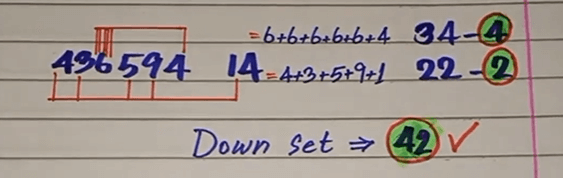 =6+6+6+6+6+4 34-4
436594 14=4+3+5+9+1 22-2
Down set ⇒ 42 ✓